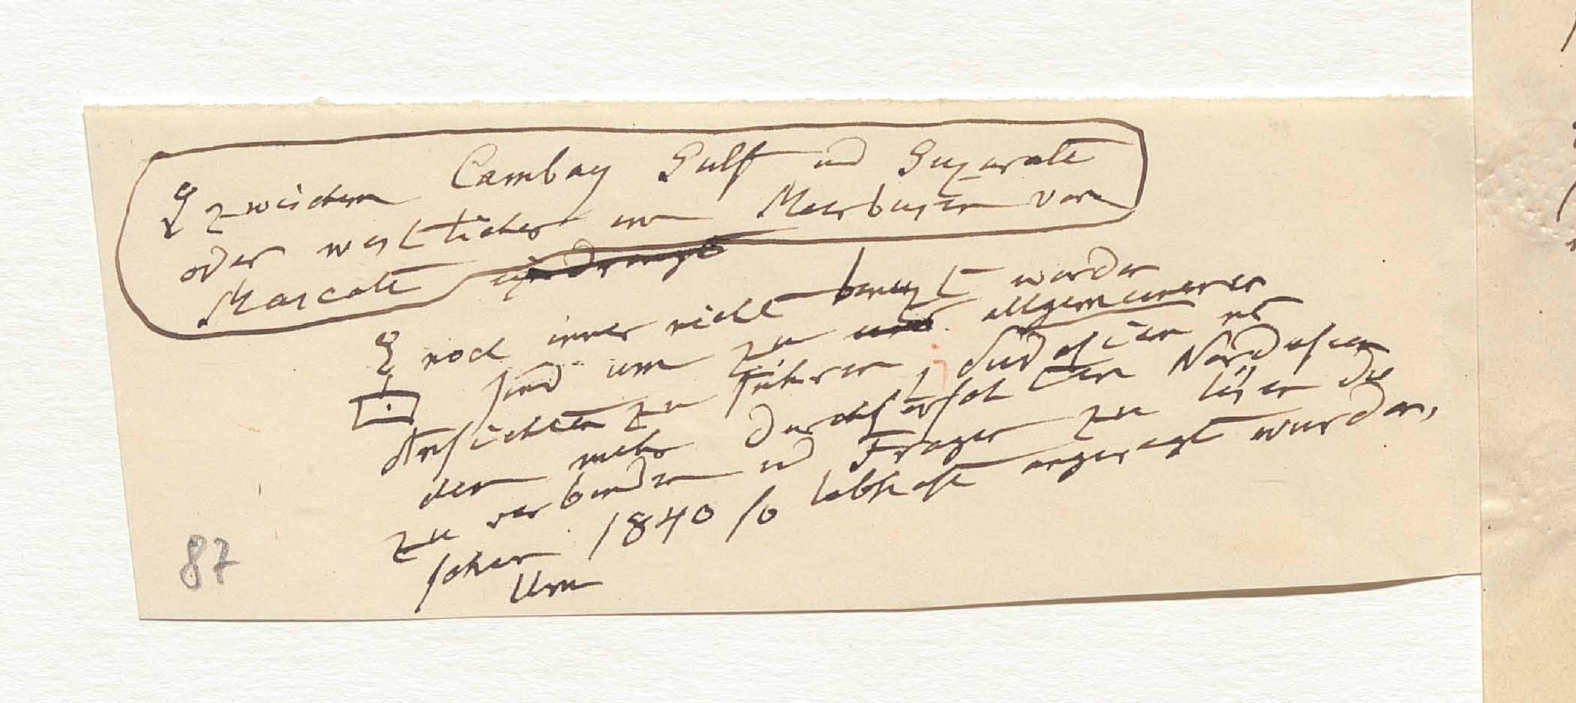 zwischen Cambay Gulf und Guzurate
oder westlicher im Meerbusen von
Mascate eindrängt
noch immer nicht benuzt worden
sind um zu allgemeineren
Ansichten zu führen, Südasien mit
dem mehr durchforschten Nordasien
zu verbinden und Fragen zu lösen die
schon 1840 so lebhaft angeregt wurden,
Um
87